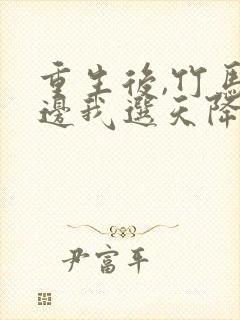 重生後,竹馬
邊我選天降
尹富平